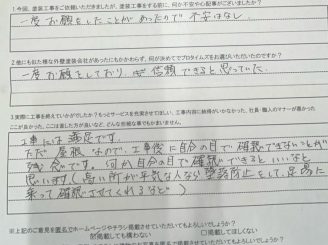 1.今回、塗装工事をご依頼いただきましたが、塗装工事をする前に、何か不安や心配事がございましたか?
一度お願をしたことがあったので不安はなし
2.他にも似た様な外壁塗装会社があったにもかかわらず、何が決めてでプロタイムズをお選びいただいたのですか?
一度お願をしており、信頼できると思っていた
3.実際に工事を終えていかがでしたか?もっとサービスを充実させてほしい、工事内容に納得がいかなかった、社員・職人のマナーが悪かった
ここが良かった、ここは直した方が良いなど、どんな些細な事でもかまいません。
工事には満足です。
ただ屋根なので、工事後に自分の目で確認できないことが
残念です。何か自分の目で確認できるといいなと
思います(高い所が平気な人なら 足場に
乗って確認させてくれるなど)
※上記のご意見を匿名でホームページやチラシ掲載させていただいてもよろしいでしょうか?
掲載しても構わない 掲載してほしくない